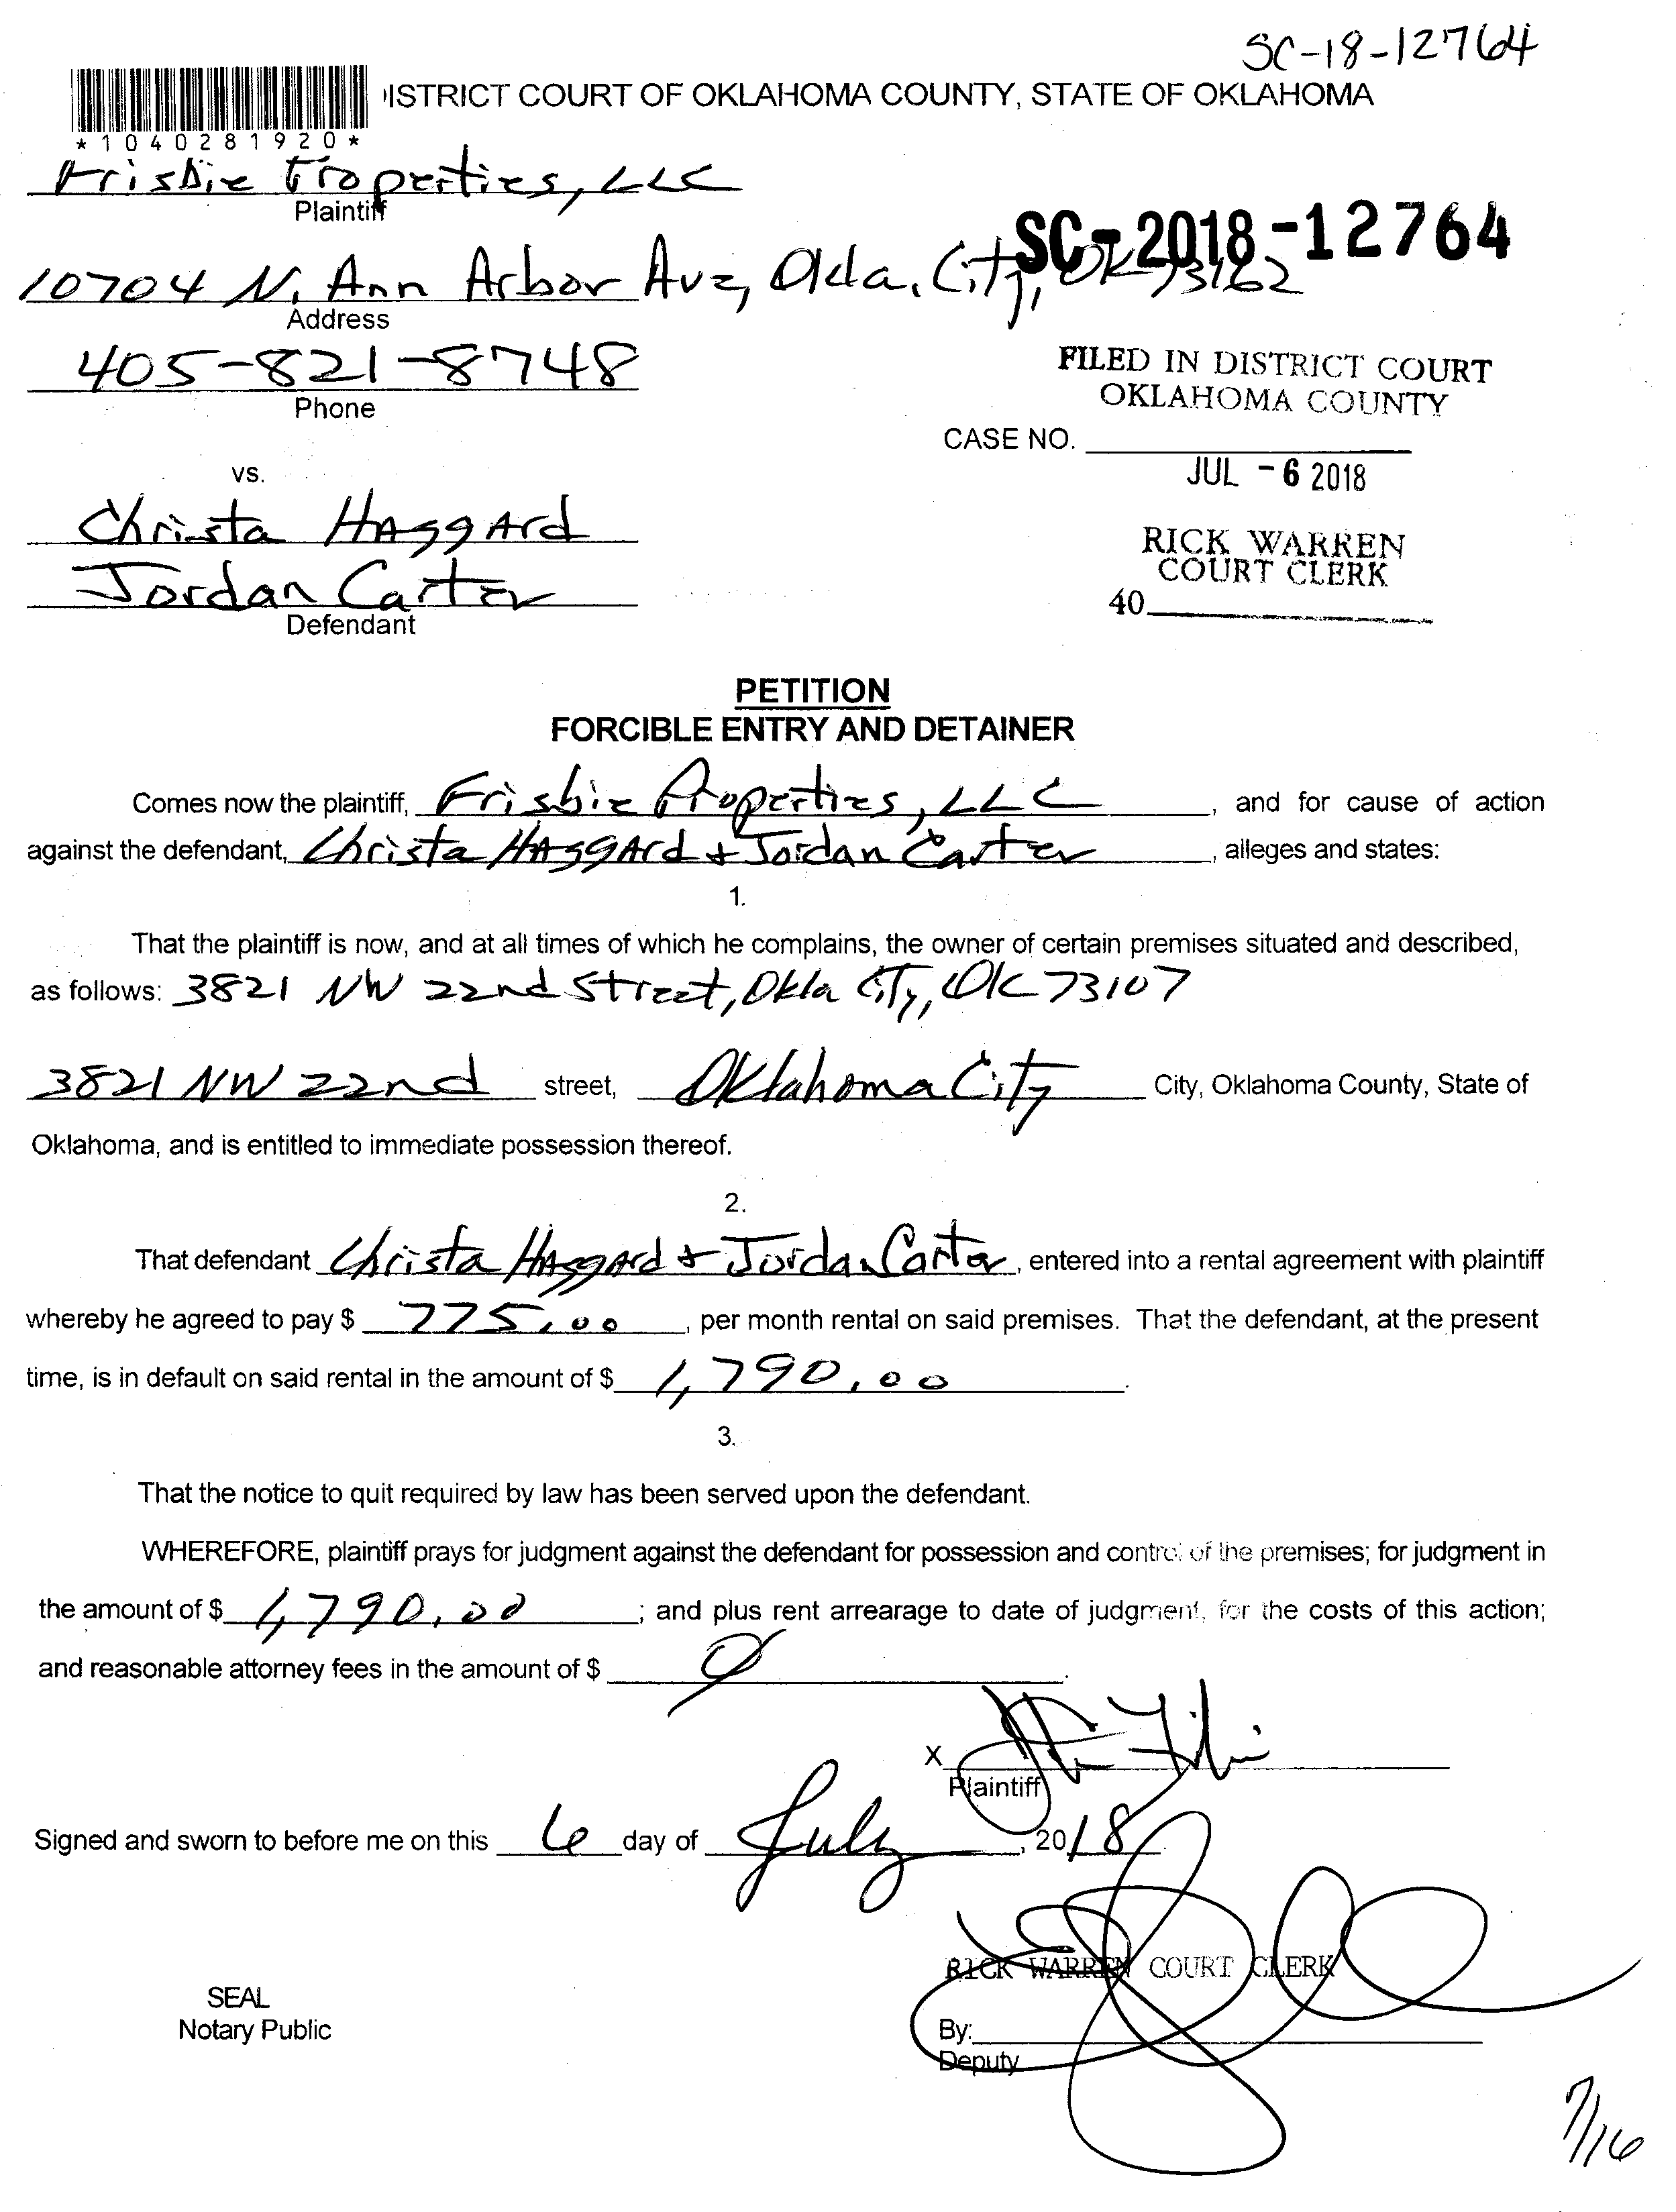 SC-18-12764
ISTRICT COURT OF OKLAHOMA COUNTY, STATE OF OKLAHOMA
*1040281920*
Frisbie Properties, LLC
Plaintiff
SC-2018-12764
10704 N. Ann Arbor Ave, Okla. City, OK 73162
Address
405-821-8748
Phone
FILED IN DISTRICT COURT
OKLAHOMA COUNTY
CASE NO.
JUL - 6 2018
vs.
Christa Haggard
RICK WARREN
COURT CLERK
Jordan Carter
40
Defendant
PETITION
FORCIBLE ENTRY AND DETAINER
Comes now the plaintiff, Frisbie Properties, LLC, and for cause of action
against the defendant, Christa Haggard + Jordan Carter, alleges and states:
1.
That the plaintiff is now, and at all times of which he complains, the owner of certain premises situated and described,
as follows: 3821 NW 22nd Street, Okla City, OK 73107
3821 NW 22nd street, Oklahoma City City, Oklahoma County, State of
Oklahoma, and is entitled to immediate possession thereof.
2.
That defendant Christa Haggard + Jordan Carter, entered into a rental agreement with plaintiff
whereby he agreed to pay $ 775.00, per month rental on said premises. That the defendant, at the present
time, is in default on said rental in the amount of $ 1,790.00.
3.
That the notice to quit required by law has been served upon the defendant.
WHEREFORE, plaintiff prays for judgment against the defendant for possession and control of the premises; for judgment in
the amount of $ 1,790.00; and plus rent arrearage to date of judgment, for the costs of this action;
and reasonable attorney fees in the amount of $ 0.
X
Plaintiff
Signed and sworn to before me on this 6 day of July, 2018.
RICK WARREN COURT CLERK
SEAL
Notary Public
By:
Deputy
7/16